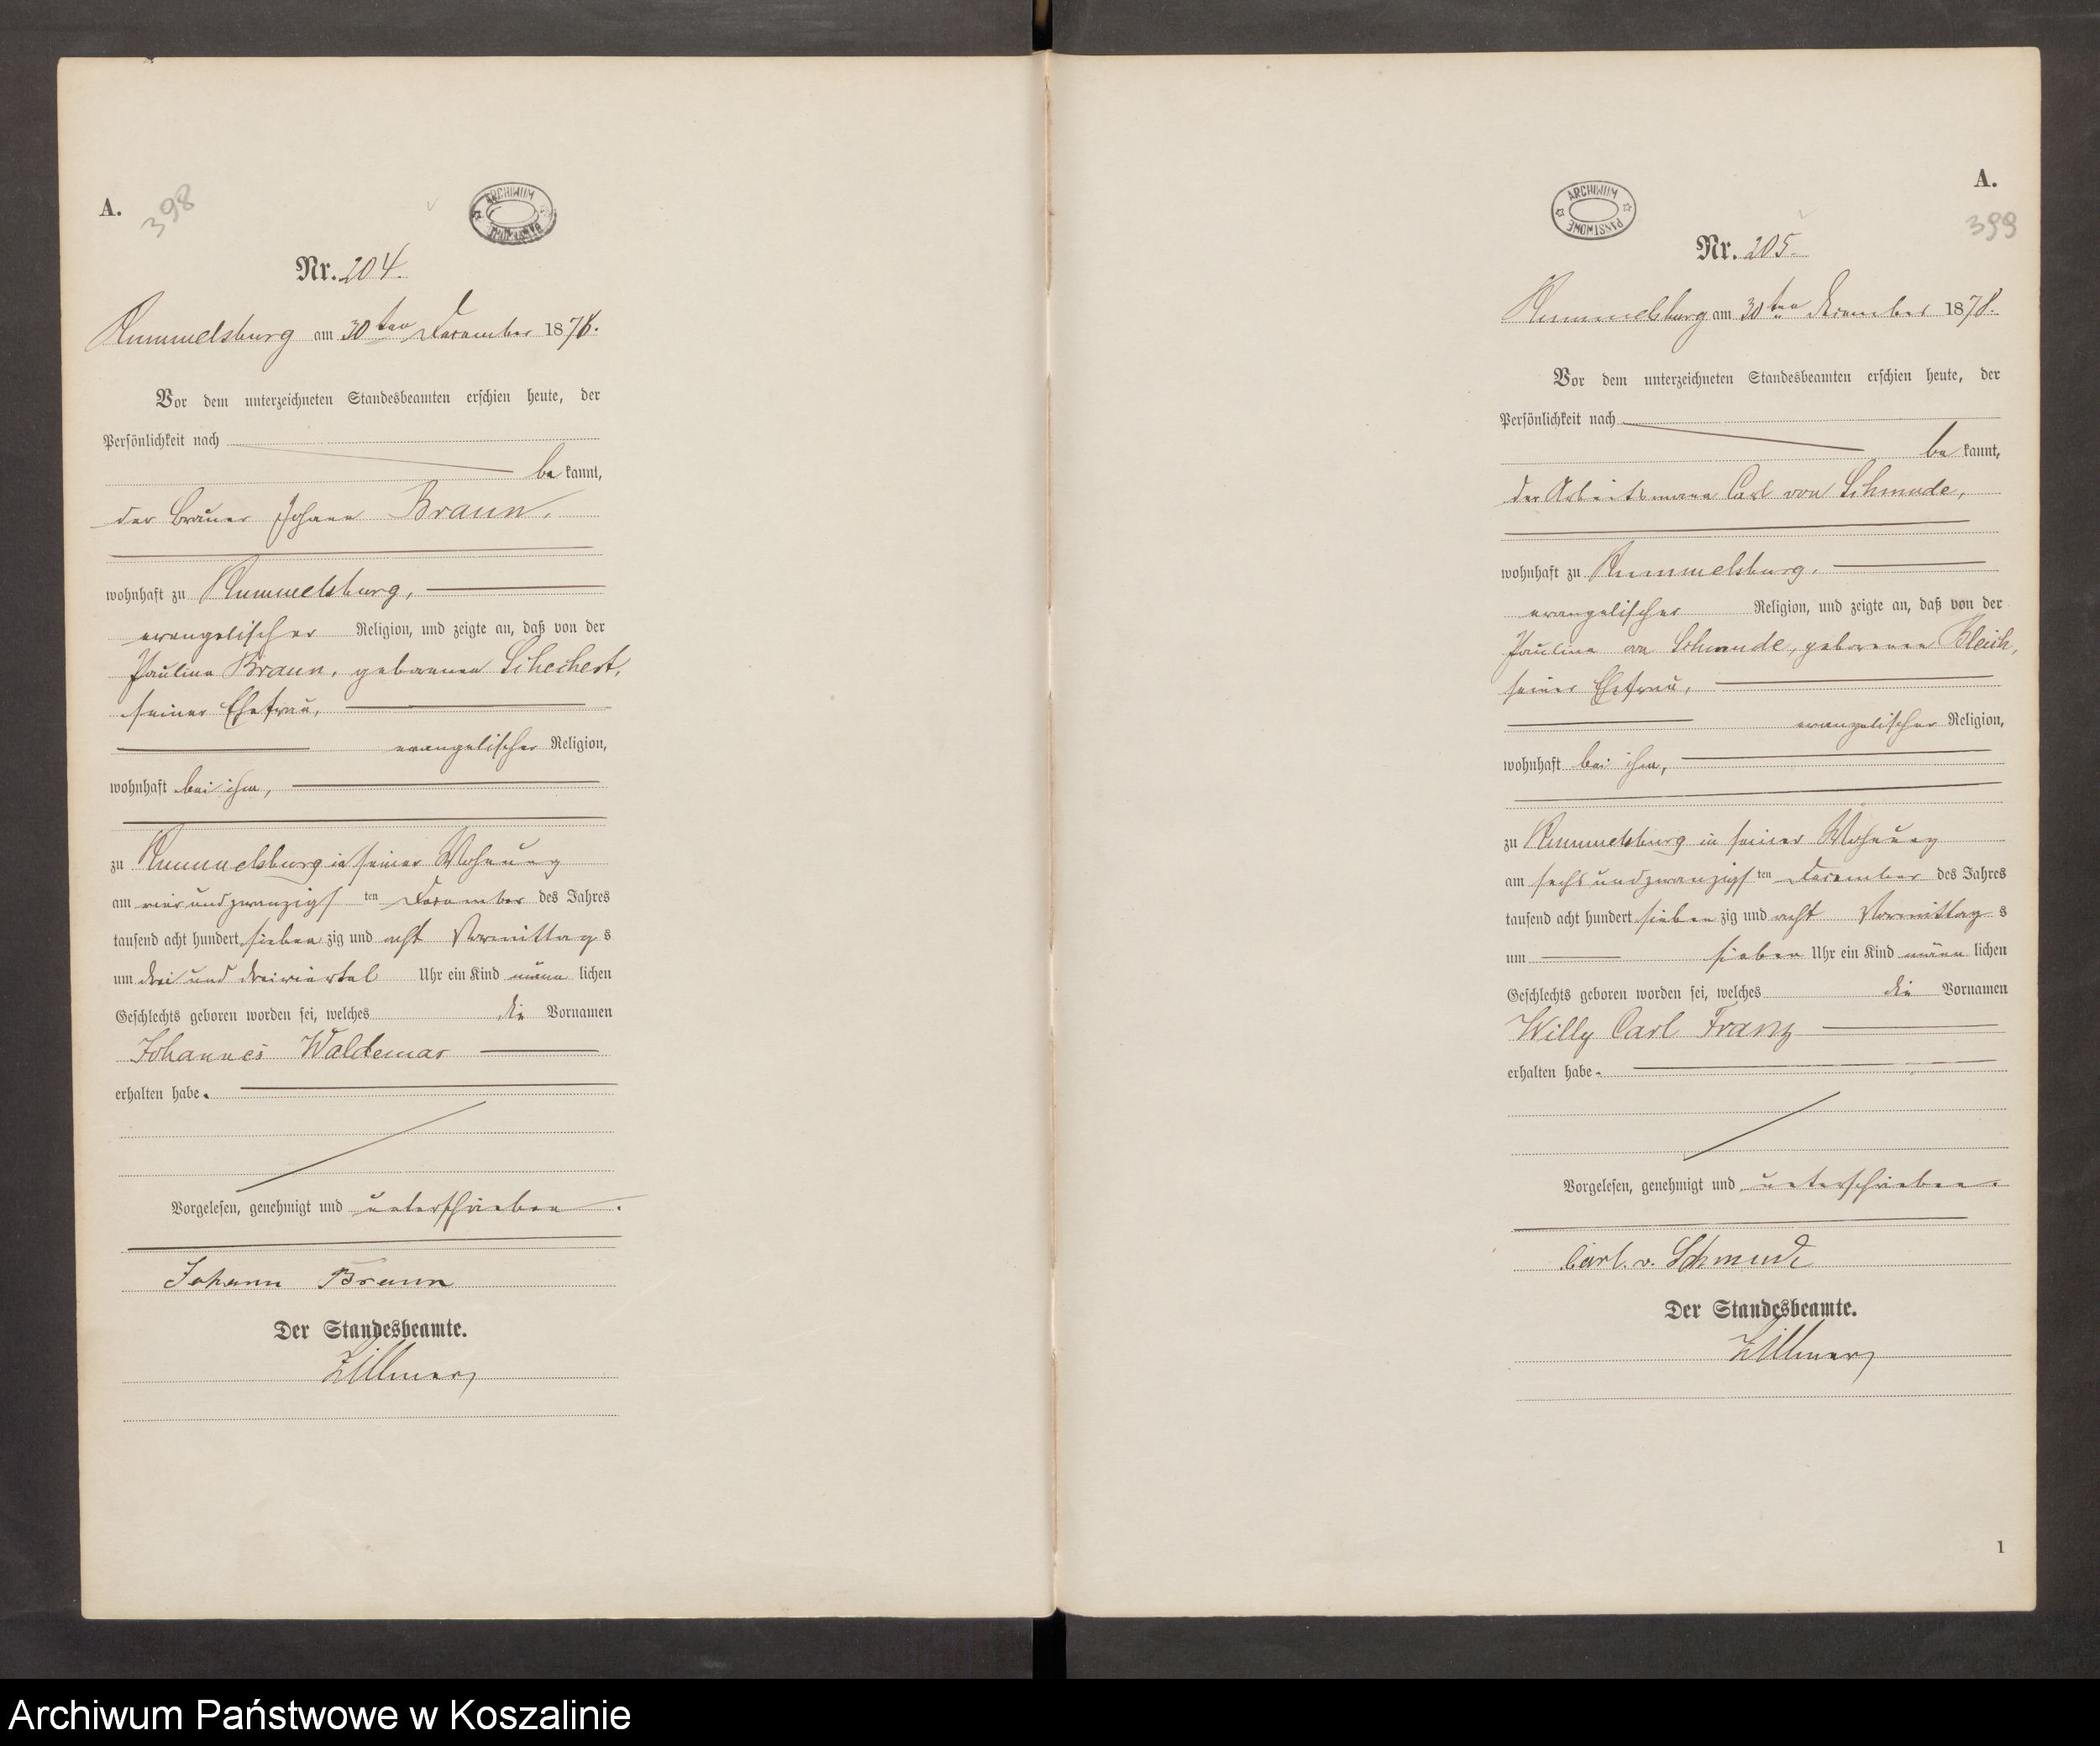 A.
398
ARCHIWUM PAŃSTWOWE
Nr. 204.
Rummelsburg am 30ten December 1878.
Vor dem unterzeichneten Standesbeamten erschien heute, der
Persönlichkeit nach
be kannt,
der Brauer Johann Braun,
wohnhaft zu Rummelsburg,
evangelischer Religion, und zeigte an, daß von der
Pauline Braun, geborenen
seiner Ehefrau,
evangelischer Religion,
wohnhaft bei ihm,
zu Rummelsburg in seiner Wohnung
am vierundzwanzigsten December des Jahres
tausend acht hundert siebenzig und acht Vormittags
um drei und dreiviertel Uhr ein Kind männlichen
Geschlechts geboren worden sei, welches die Vornamen
Johannes Waldemar
erhalten habe.
Vorgelesen, genehmigt und unterschrieben.
Johann Braun
Der Standesbeamte.
Zillmer
A.
399
ARCHIWUM PAŃSTWOWE
Nr. 205.
Rummelsburg am 30ten December 1878.
Vor dem unterzeichneten Standesbeamten erschien heute, der
Persönlichkeit nach
be kannt,
der Arbeitsmann Carl von Schmude,
wohnhaft zu Rummelsburg,
evangelischer Religion, und zeigte an, daß von der
Pauline von Schmude, geborenen Bleich,
seiner Ehefrau,
evangelischer Religion,
wohnhaft bei ihm,
zu Rummelsburg in seiner Wohnung
am sechsundzwanzigsten December des Jahres
tausend acht hundert siebenzig und acht Vormittags
um sieben Uhr ein Kind männlichen
Geschlechts geboren worden sei, welches die Vornamen
Willy Carl Franz
erhalten habe.
Vorgelesen, genehmigt und unterschrieben.
Carl. v. Schmude
Der Standesbeamte.
Zillmer
1
Archiwum Państwowe w Koszalinie